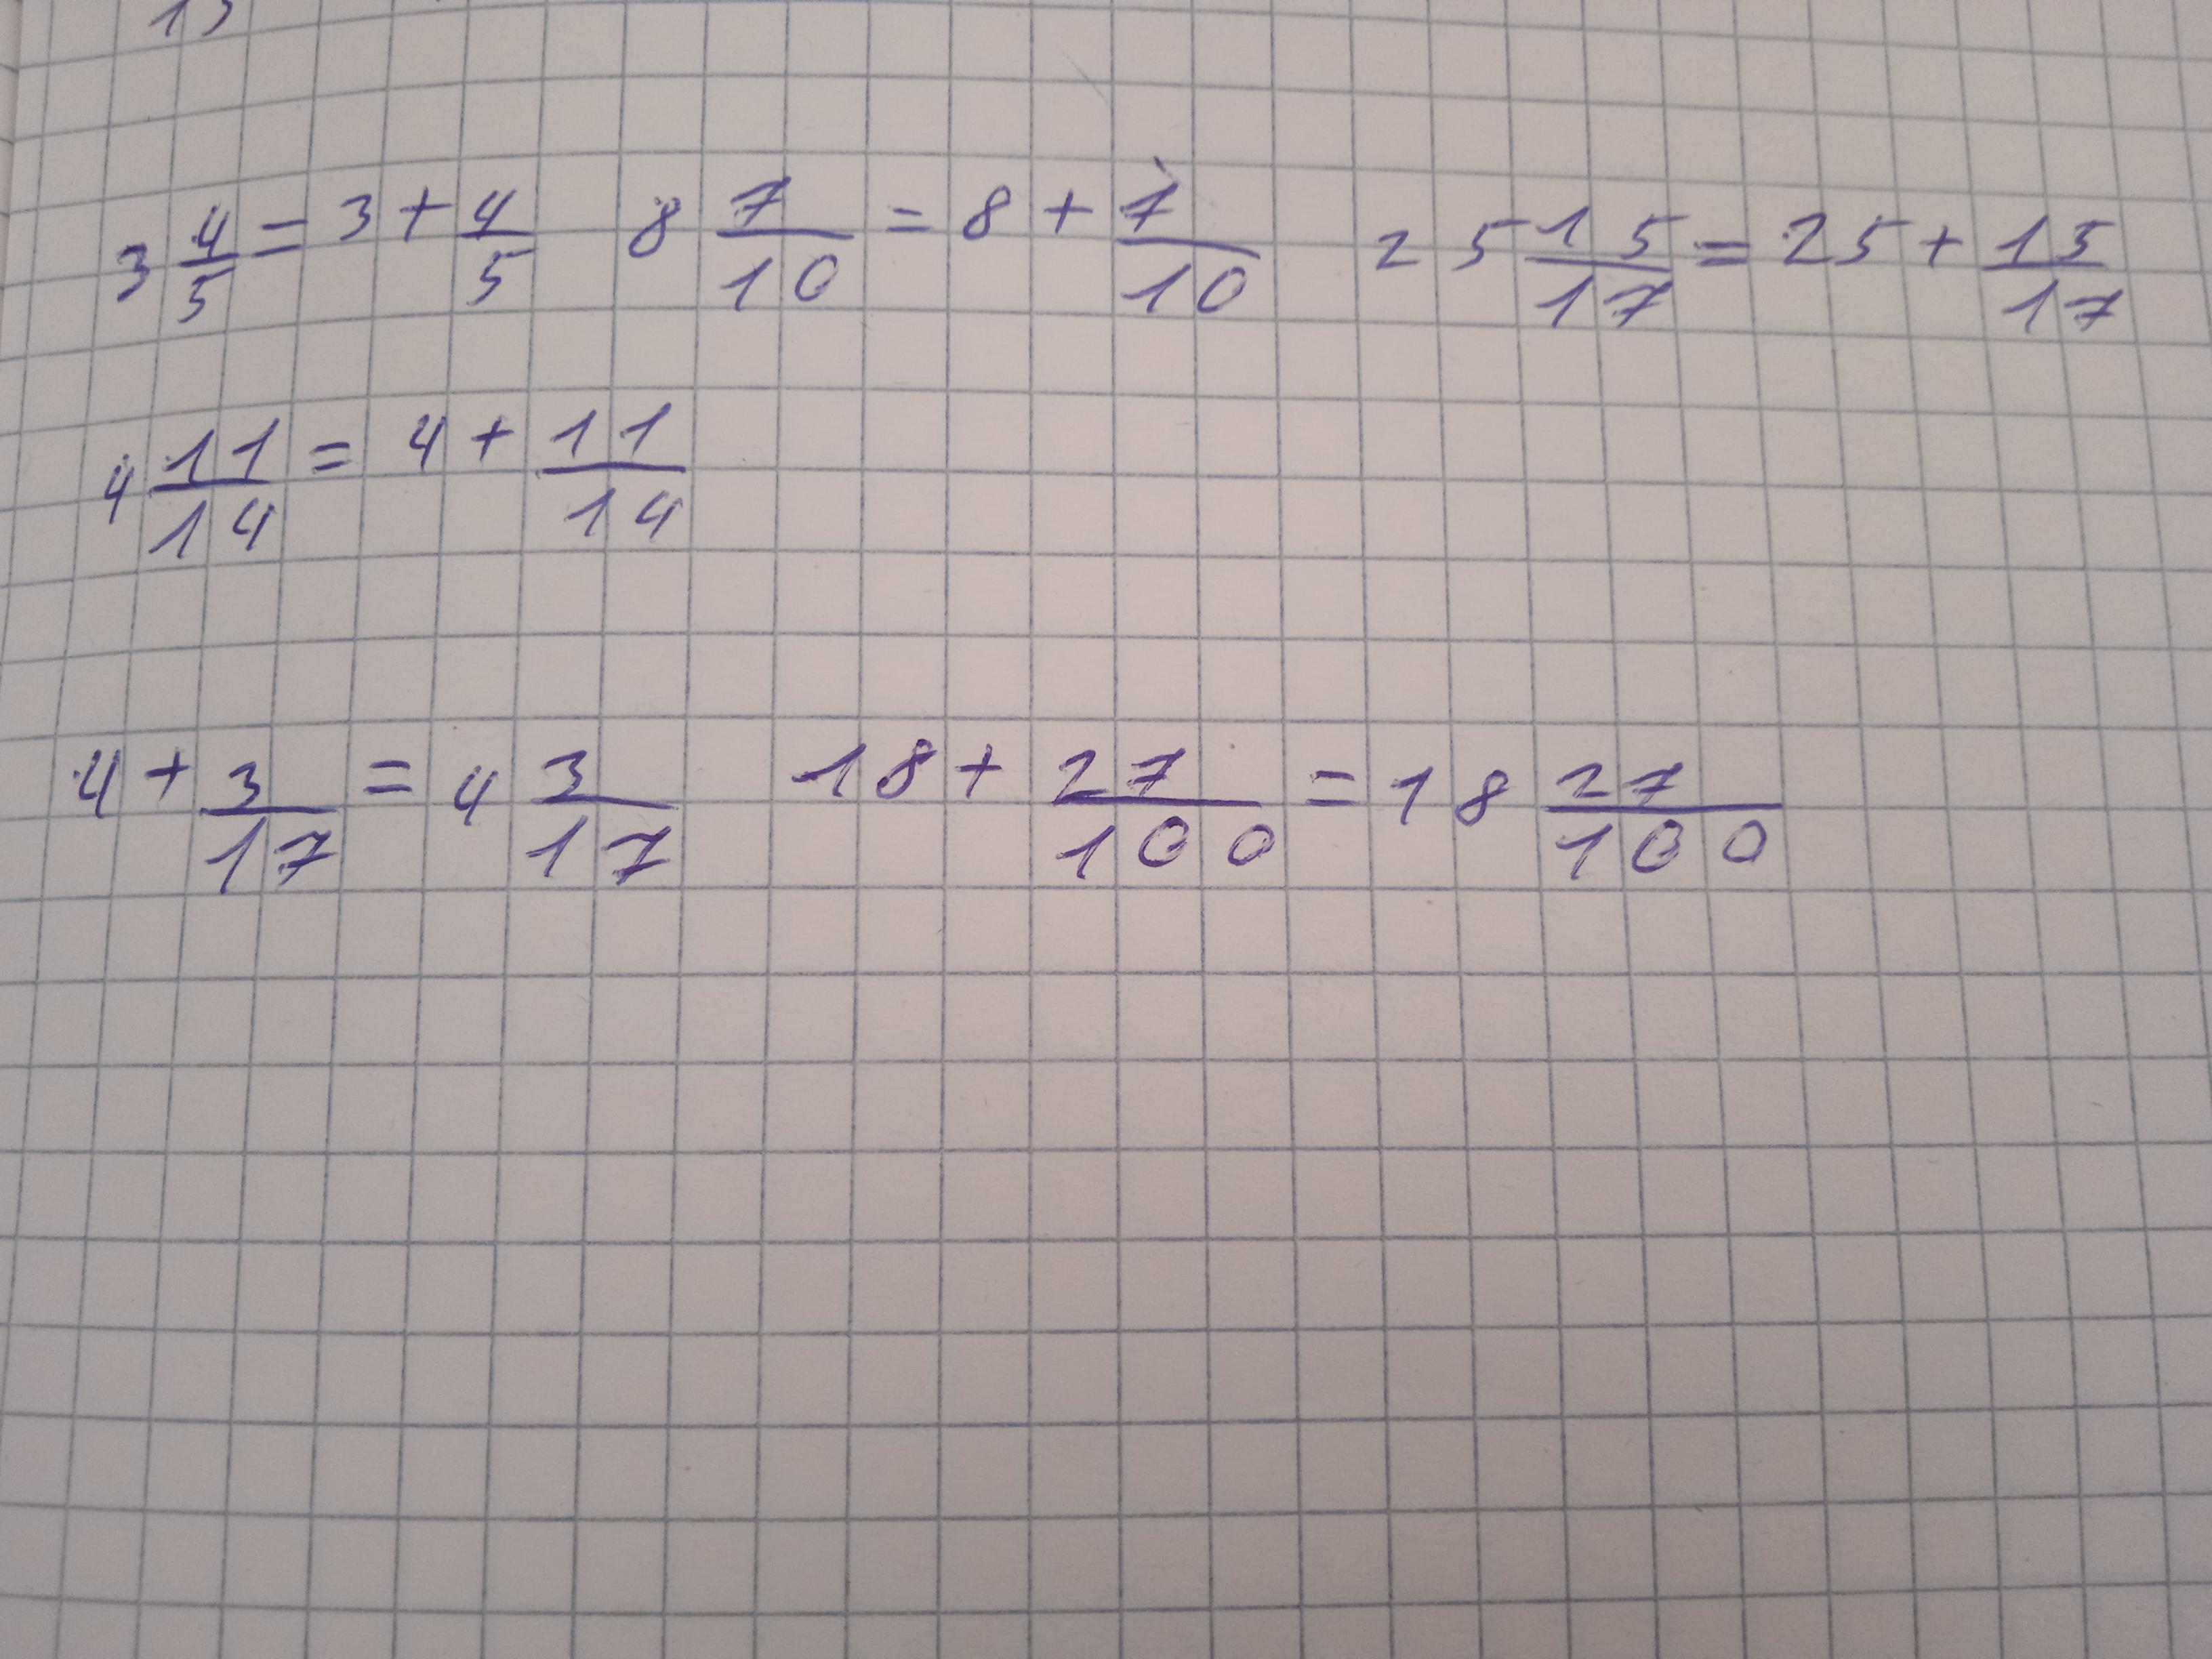 3 4/5 = 3 + 4/5   8 7/10 = 8 + 7/10   25 15/17 = 25 + 15/17
4 11/14 = 4 + 11/14
4 + 3/17 = 4 3/17   18 + 27/100 = 18 27/100